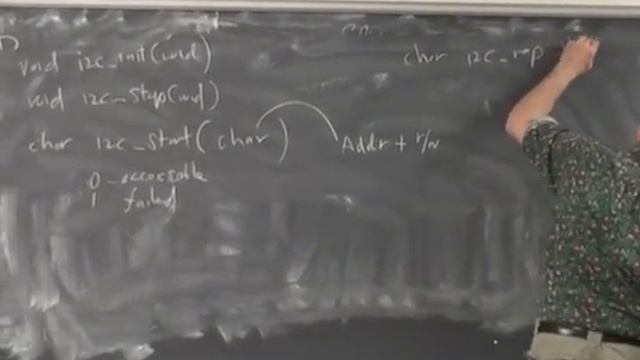 void i2c_init(void)
void i2c_stop(void)
char i2c_start(char) Addr + r/w
0 - accessable
1 failed
char i2c_rep